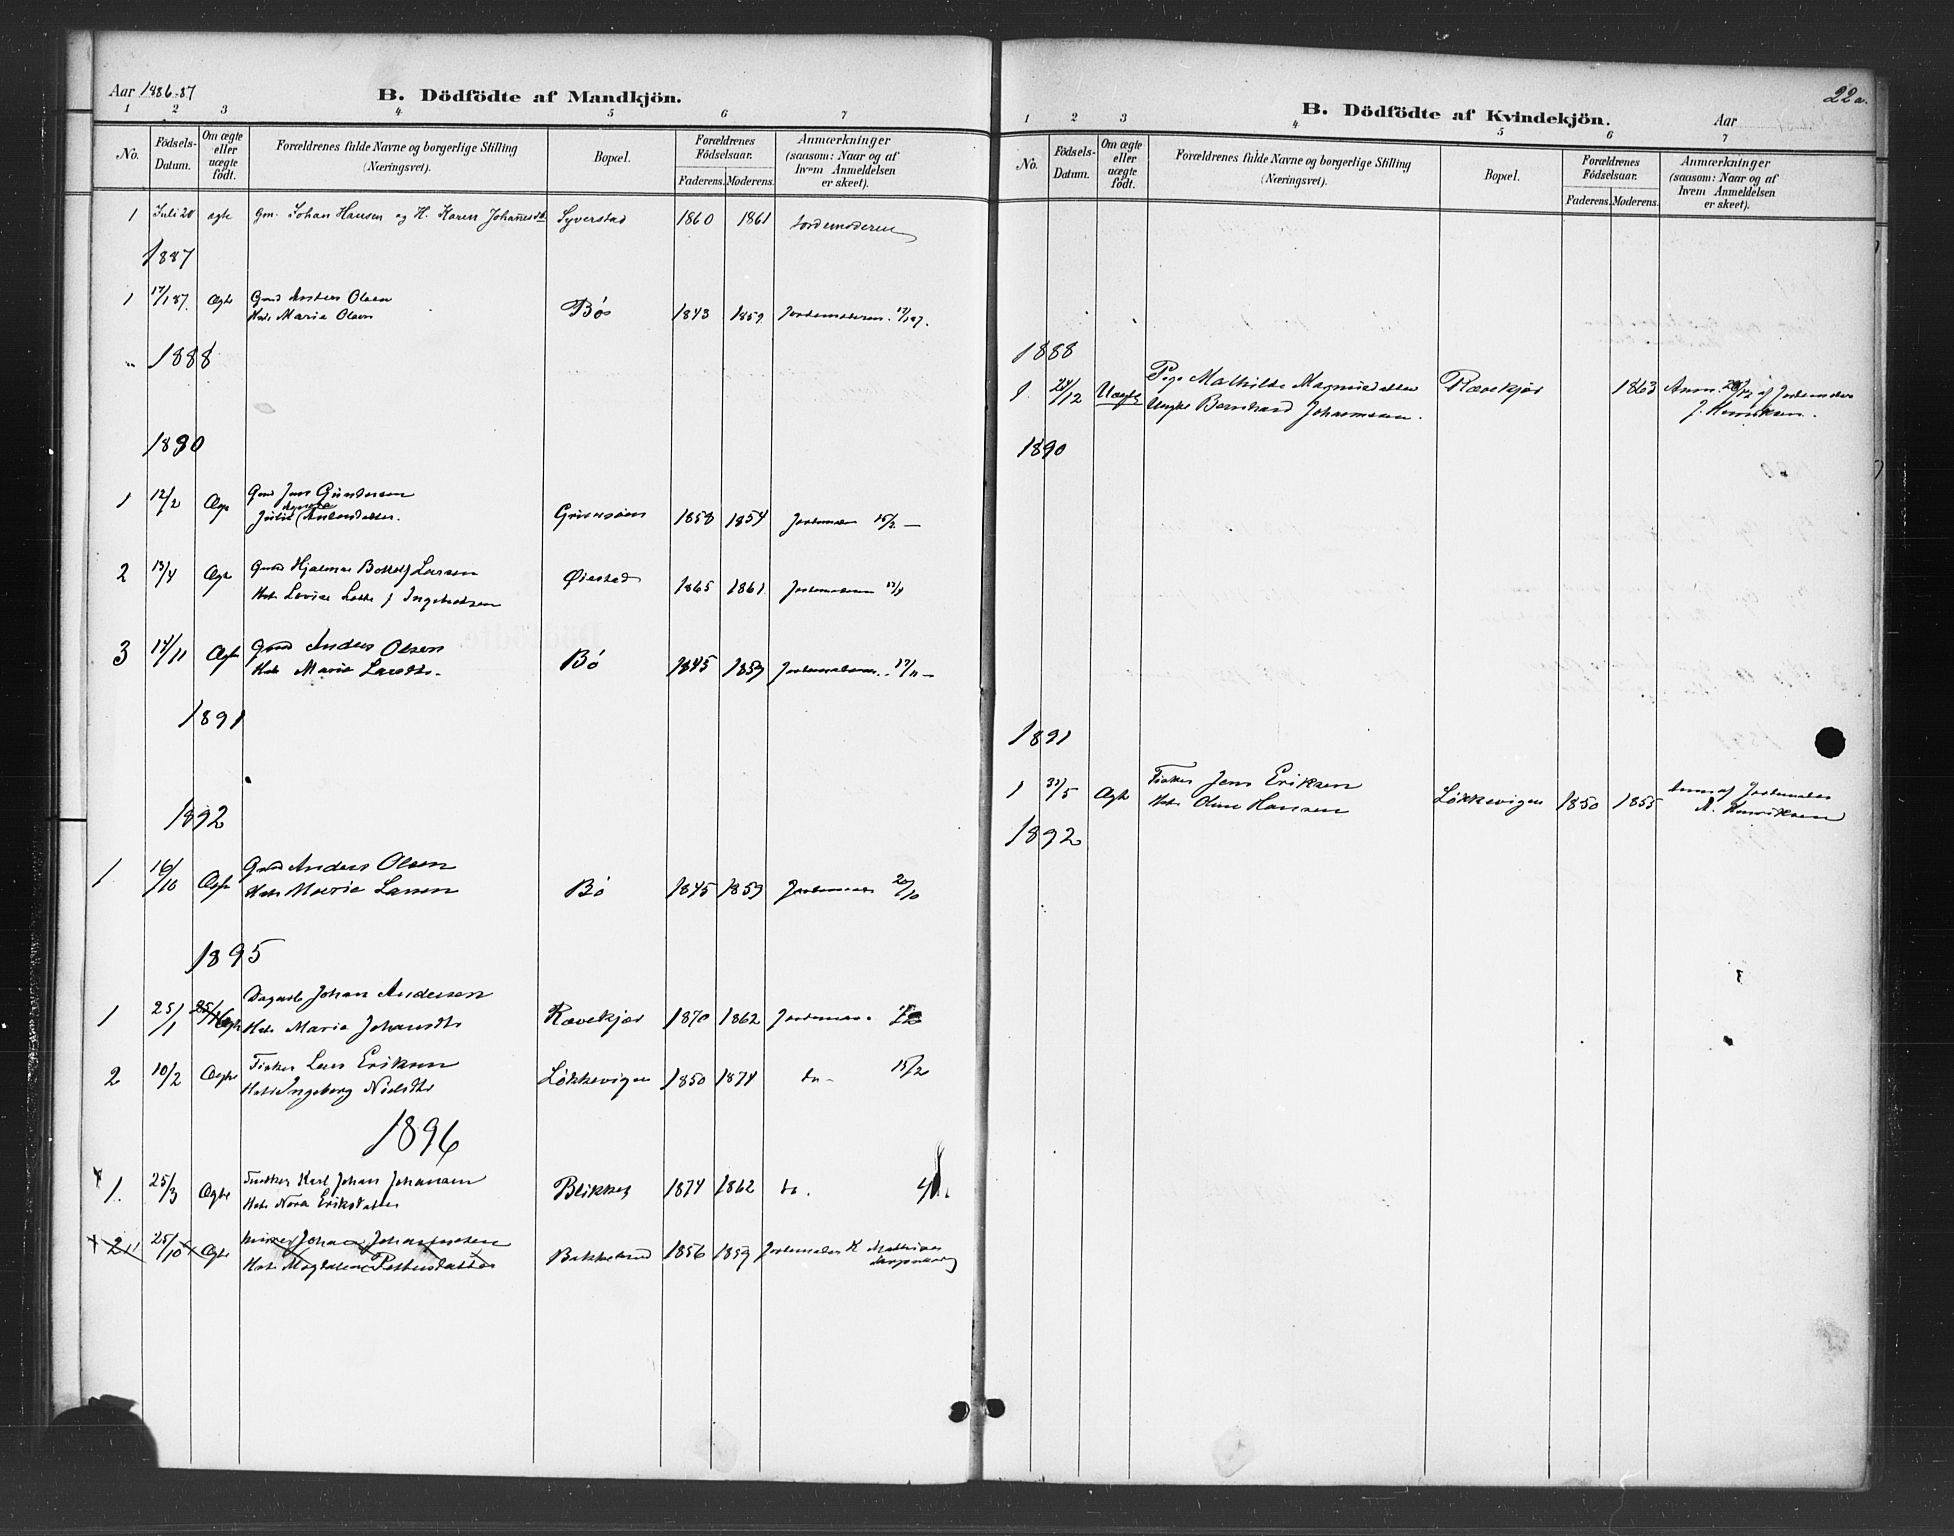 Aar 1886-87
B. Dödfödte af Mandkjön.
1 2 3 4 5 6 7
No.
Födsels-Datum.
Om ægte eller uægte födt.
Forældrenes fulde Navne og borgerlige Stilling
(Næringsvei).
Bopæl.
Forældrenes Födselsaar.
Faderens. Moderens.
Anmærkninger
(saasom: Naar og af
hvem Anmeldelsen
er skeet).
1 Juli 28 ægte Gm. Johan Hansen og H. Karen Johannesdt Syverstad 1860 1861 Jordemoderen
1887
1 17/1 87. Ægte Gmd Anders Olsen
Hst. Maria Olsen Bø 1843 1859 Jordemoderen 17/1 87.
1888
1890
1 12/2 Ægte Gmd Jens Gundersen
Julie Andersdatter. 1858 1854 Jordemoder 15/2
2 13/4 Ægte Gmd Hjalmar Larsen
Hst. Lovise Ingebretsen Øiestad 1865 1861 Jordemoderen 13/4
3 14/11 Ægte Gmd Anders Olsen
Hst. Maria Larsdtr. Bø 1845 1859 Jordemoderen 17/11
1891
1892
1 16/10 Ægte Gmd Anders Olsen
Hst. Maria Larsen Bø 1845 1859 Jordemoder 20/10
1895
1 25/1 Ægte Johan Andersen
Hst. Maria Johansdtr Rævekjær 1870 1862 Jordemor.
2 10/2 Ægte Fisker Lars Eriksen
Hst. Ingeborg Nielsdtr Løkkevigen 1850 1874 do 15/2
1896
1. 25/3 Ægte Karl Johan Johansen
Hst. Nora Eriksdatter Blikket 1874 1862 do.
2 25/10 Ægte Johan Johannesen
Hst. Magdalene Pettersdatter Bakkebrud 1856 1859 Jordemoder K. Mathisen
22a.
B. Dödfödte af Kvindekjön.
Aar
1 2 3 4 5 6 7
No.
Födsels-Datum.
Om ægte eller uægte födt.
Forældrenes fulde Navne og borgerlige Stilling
(Næringsvei).
Bopæl.
Forældrenes Födselsaar.
Faderens. Moderens.
Anmærkninger
(saasom: Naar og af
hvem Anmeldelsen
er skeet).
1888
1 24/12 Uægte Pige Mathilde Magnusdatter Rævekjær 1863 Anm. af Jordemoder
Ungkr Bernhard Johannesen. J. Henriksen.
1890
1891
1 31/5 Ægte Fisker Jens Eriksen
Hst. Oline Hansen Løkkevigen 1850 1855 Anm af Jordemoder
A. Henriksen
1892